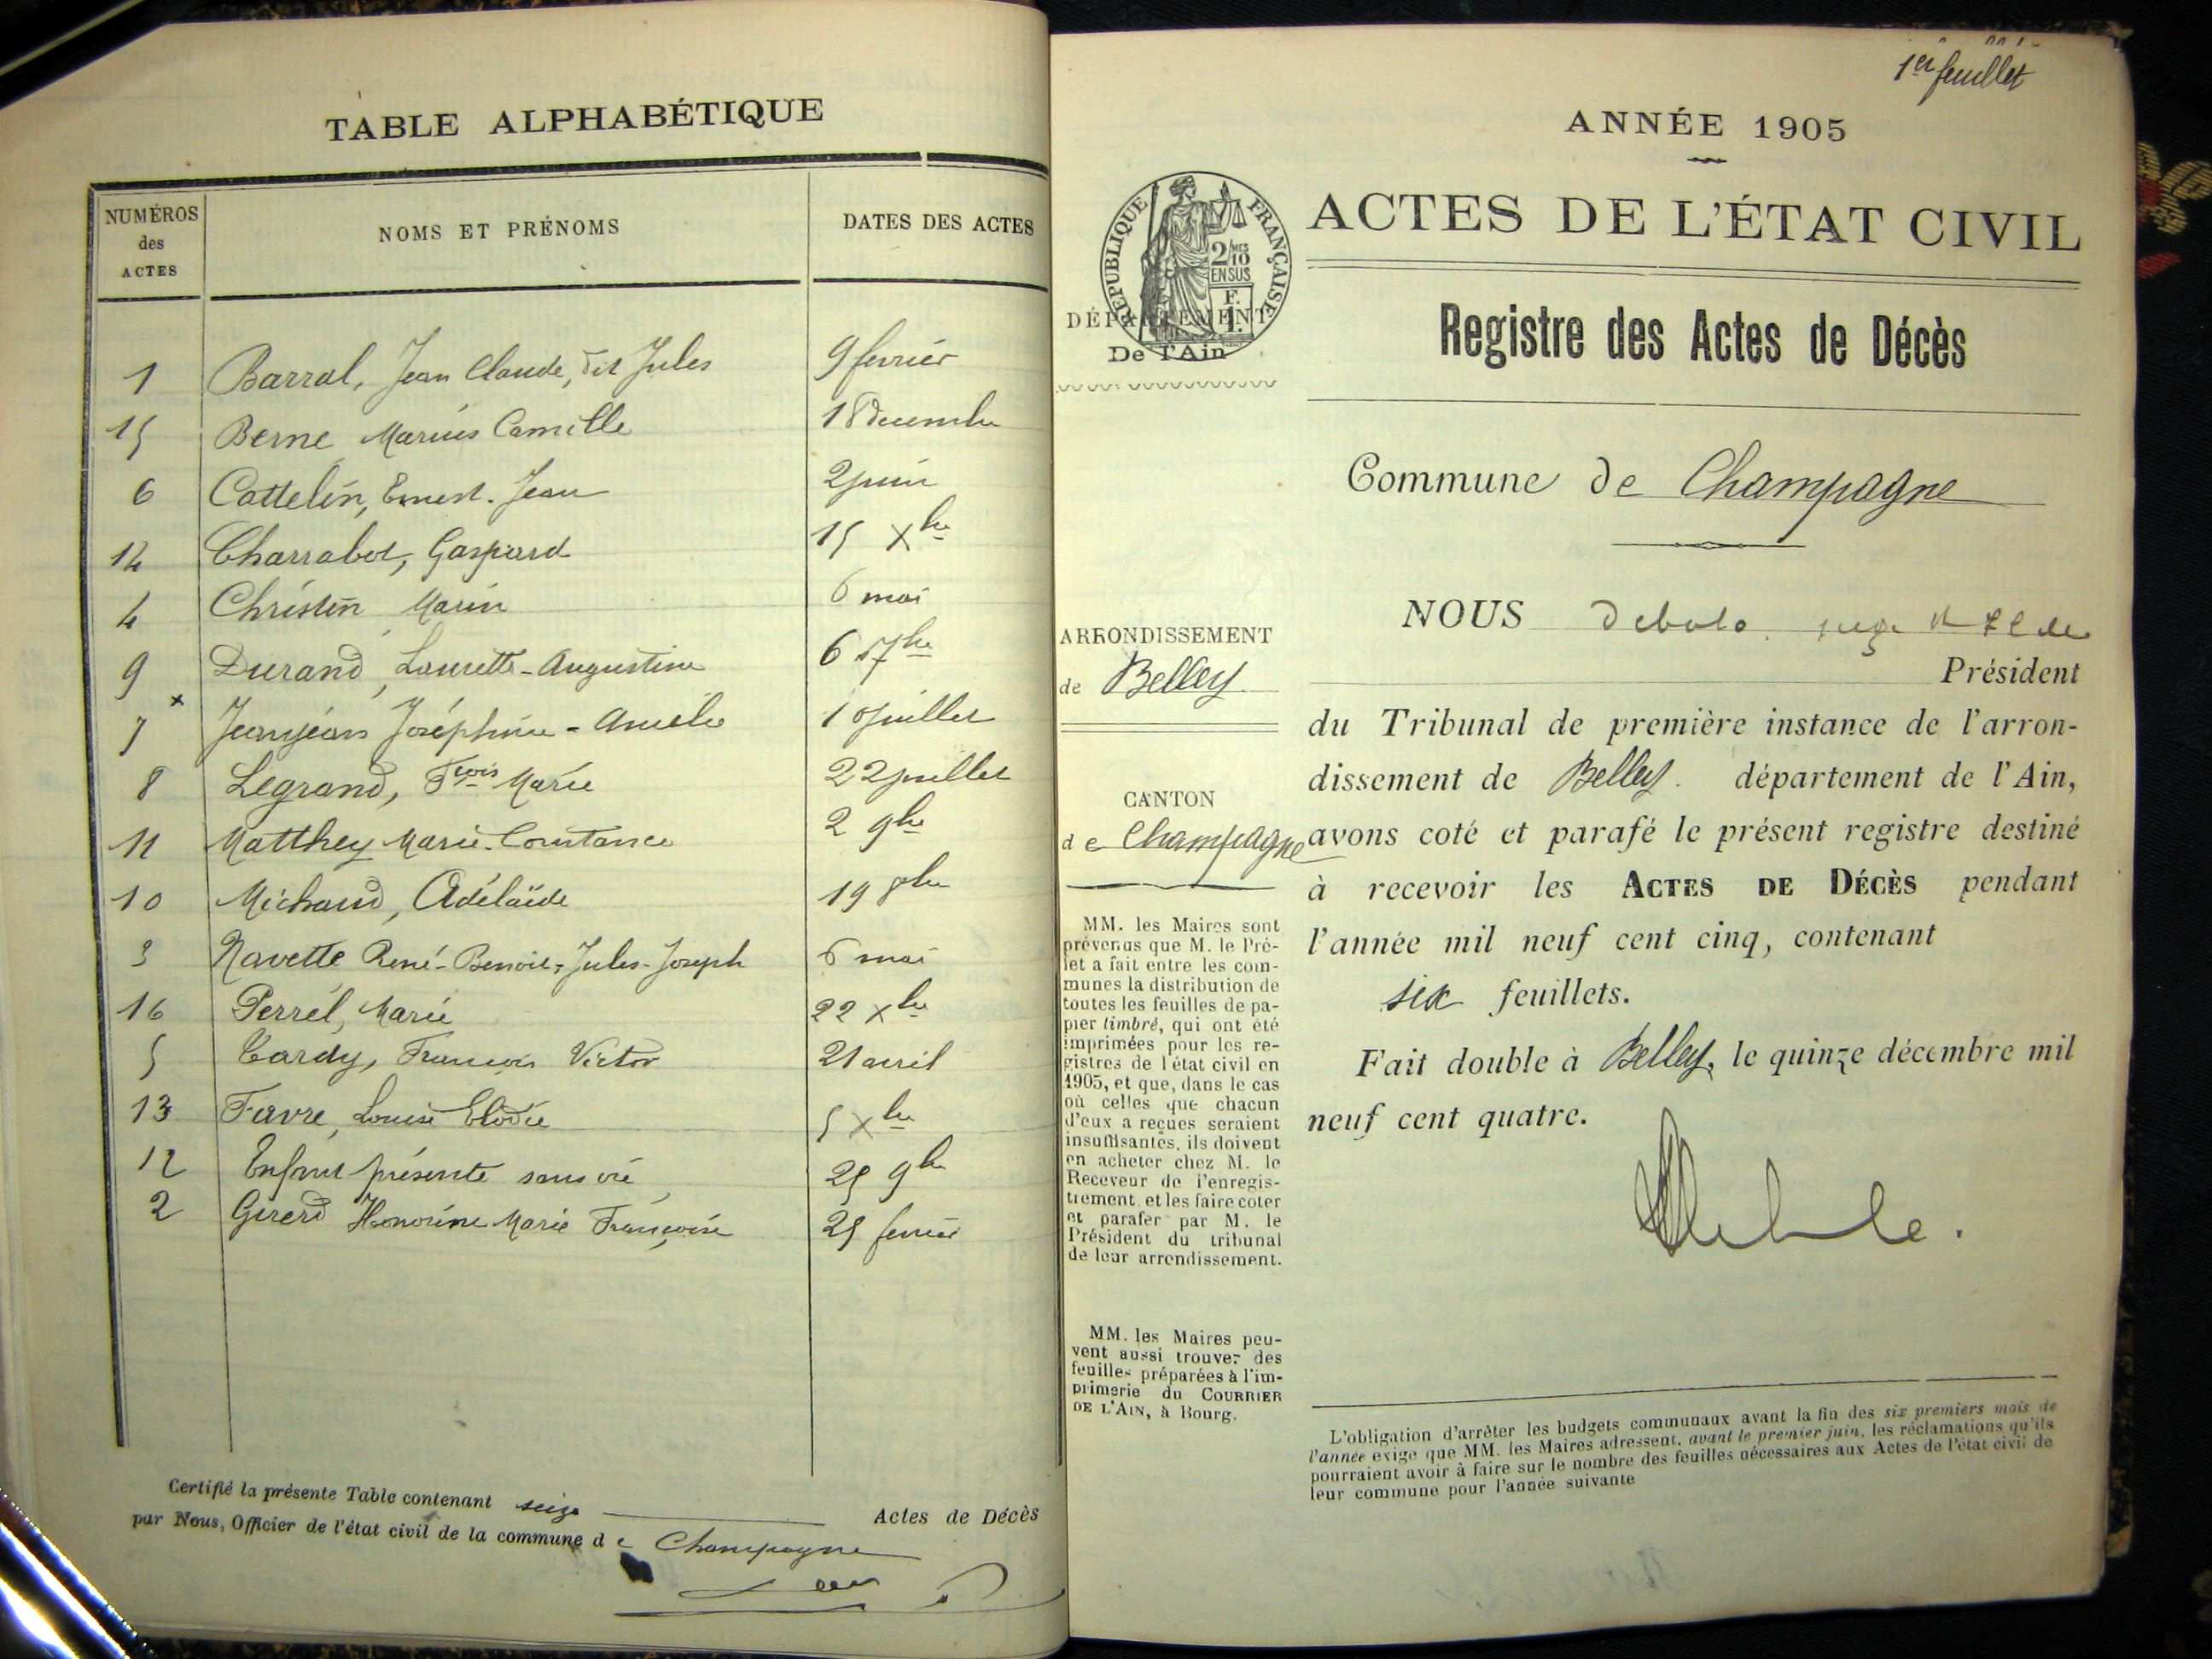 TABLE ALPHABÉTIQUE
NUMÉROS des ACTES
NOMS ET PRÉNOMS
DATES DES ACTES
1 Barral, Jean Claude, dit Jules 9 février
15 Berne Marius Camille 18 décembre
6 Cattelin, Ernest-Jean 2 juin
14 Charrabot, Gaspard 15 Xbre
4 Christin Marin 6 mai
9 Durand, Laurette-Augustine 6 7bre
7 x Jeanjean Joséphine-Amélie 10 juillet
8 Legrand, Fcois Marie 22 juillet
11 Matthey Marie-Constance 2 9bre
10 Michaud, Adélaïde 19 8bre
3 Navette René-Benoit-Jules-Joseph 6 mai
16 Perrel, Marie 22 Xbre
5 Tardy, François Victor 21 avril
13 Favre, Louise Elodie 5 Xbre
12 Enfant présenté sans vie 25 9bre
2 Girerd Honorine Marie Françoise 25 février
Certifié la présente Table contenant seize Actes de Décès
par Nous, Officier de l'état civil de la commune de Champagne
1er feuillet
ANNÉE 1905
ACTES DE L'ÉTAT CIVIL
RÉPUBLIQUE FRANÇAISE
2/10 MES EN SUS
F.
1.
DÉPARTEMENT
De l'Ain
Registre des Actes de Décès
Commune de Champagne
ARRONDISSEMENT
de Belley
CANTON
de Champagne
MM. les Maires sont
prévenus que M. le Pré-
fet a fait entre les com-
munes la distribution de
toutes les feuilles de pa-
pier timbré, qui ont été
imprimées pour les re-
gistres de l'état civil en
1905, et que, dans le cas
où celles que chacun
d'eux a reçues seraient
insuffisantes, ils doivent
en acheter chez M. le
Receveur de l'enregis-
trement et les faire coter
et parafer par M. le
Président du tribunal
de leur arrondissement.
MM. les Maires peu-
vent aussi trouver des
feuilles préparées à l'im-
primerie du COURRIER
DE L'AIN, à Bourg.
NOUS
Président
du Tribunal de première instance de l'arron-
dissement de Belley. département de l'Ain,
avons coté et parafé le présent registre destiné
à recevoir les ACTES DE DÉCÈS pendant
l'année mil neuf cent cinq, contenant
six feuillets.
Fait double à Belley, le quinze décembre mil
neuf cent quatre.
L'obligation d'arrêter les budgets communaux avant la fin des six premiers mois de
l'année exige que MM. les Maires adressent, avant le premier juin, les réclamations qu'ils
pourraient avoir à faire sur le nombre des feuilles nécessaires aux Actes de l'état civil de
leur commune pour l'année suivante